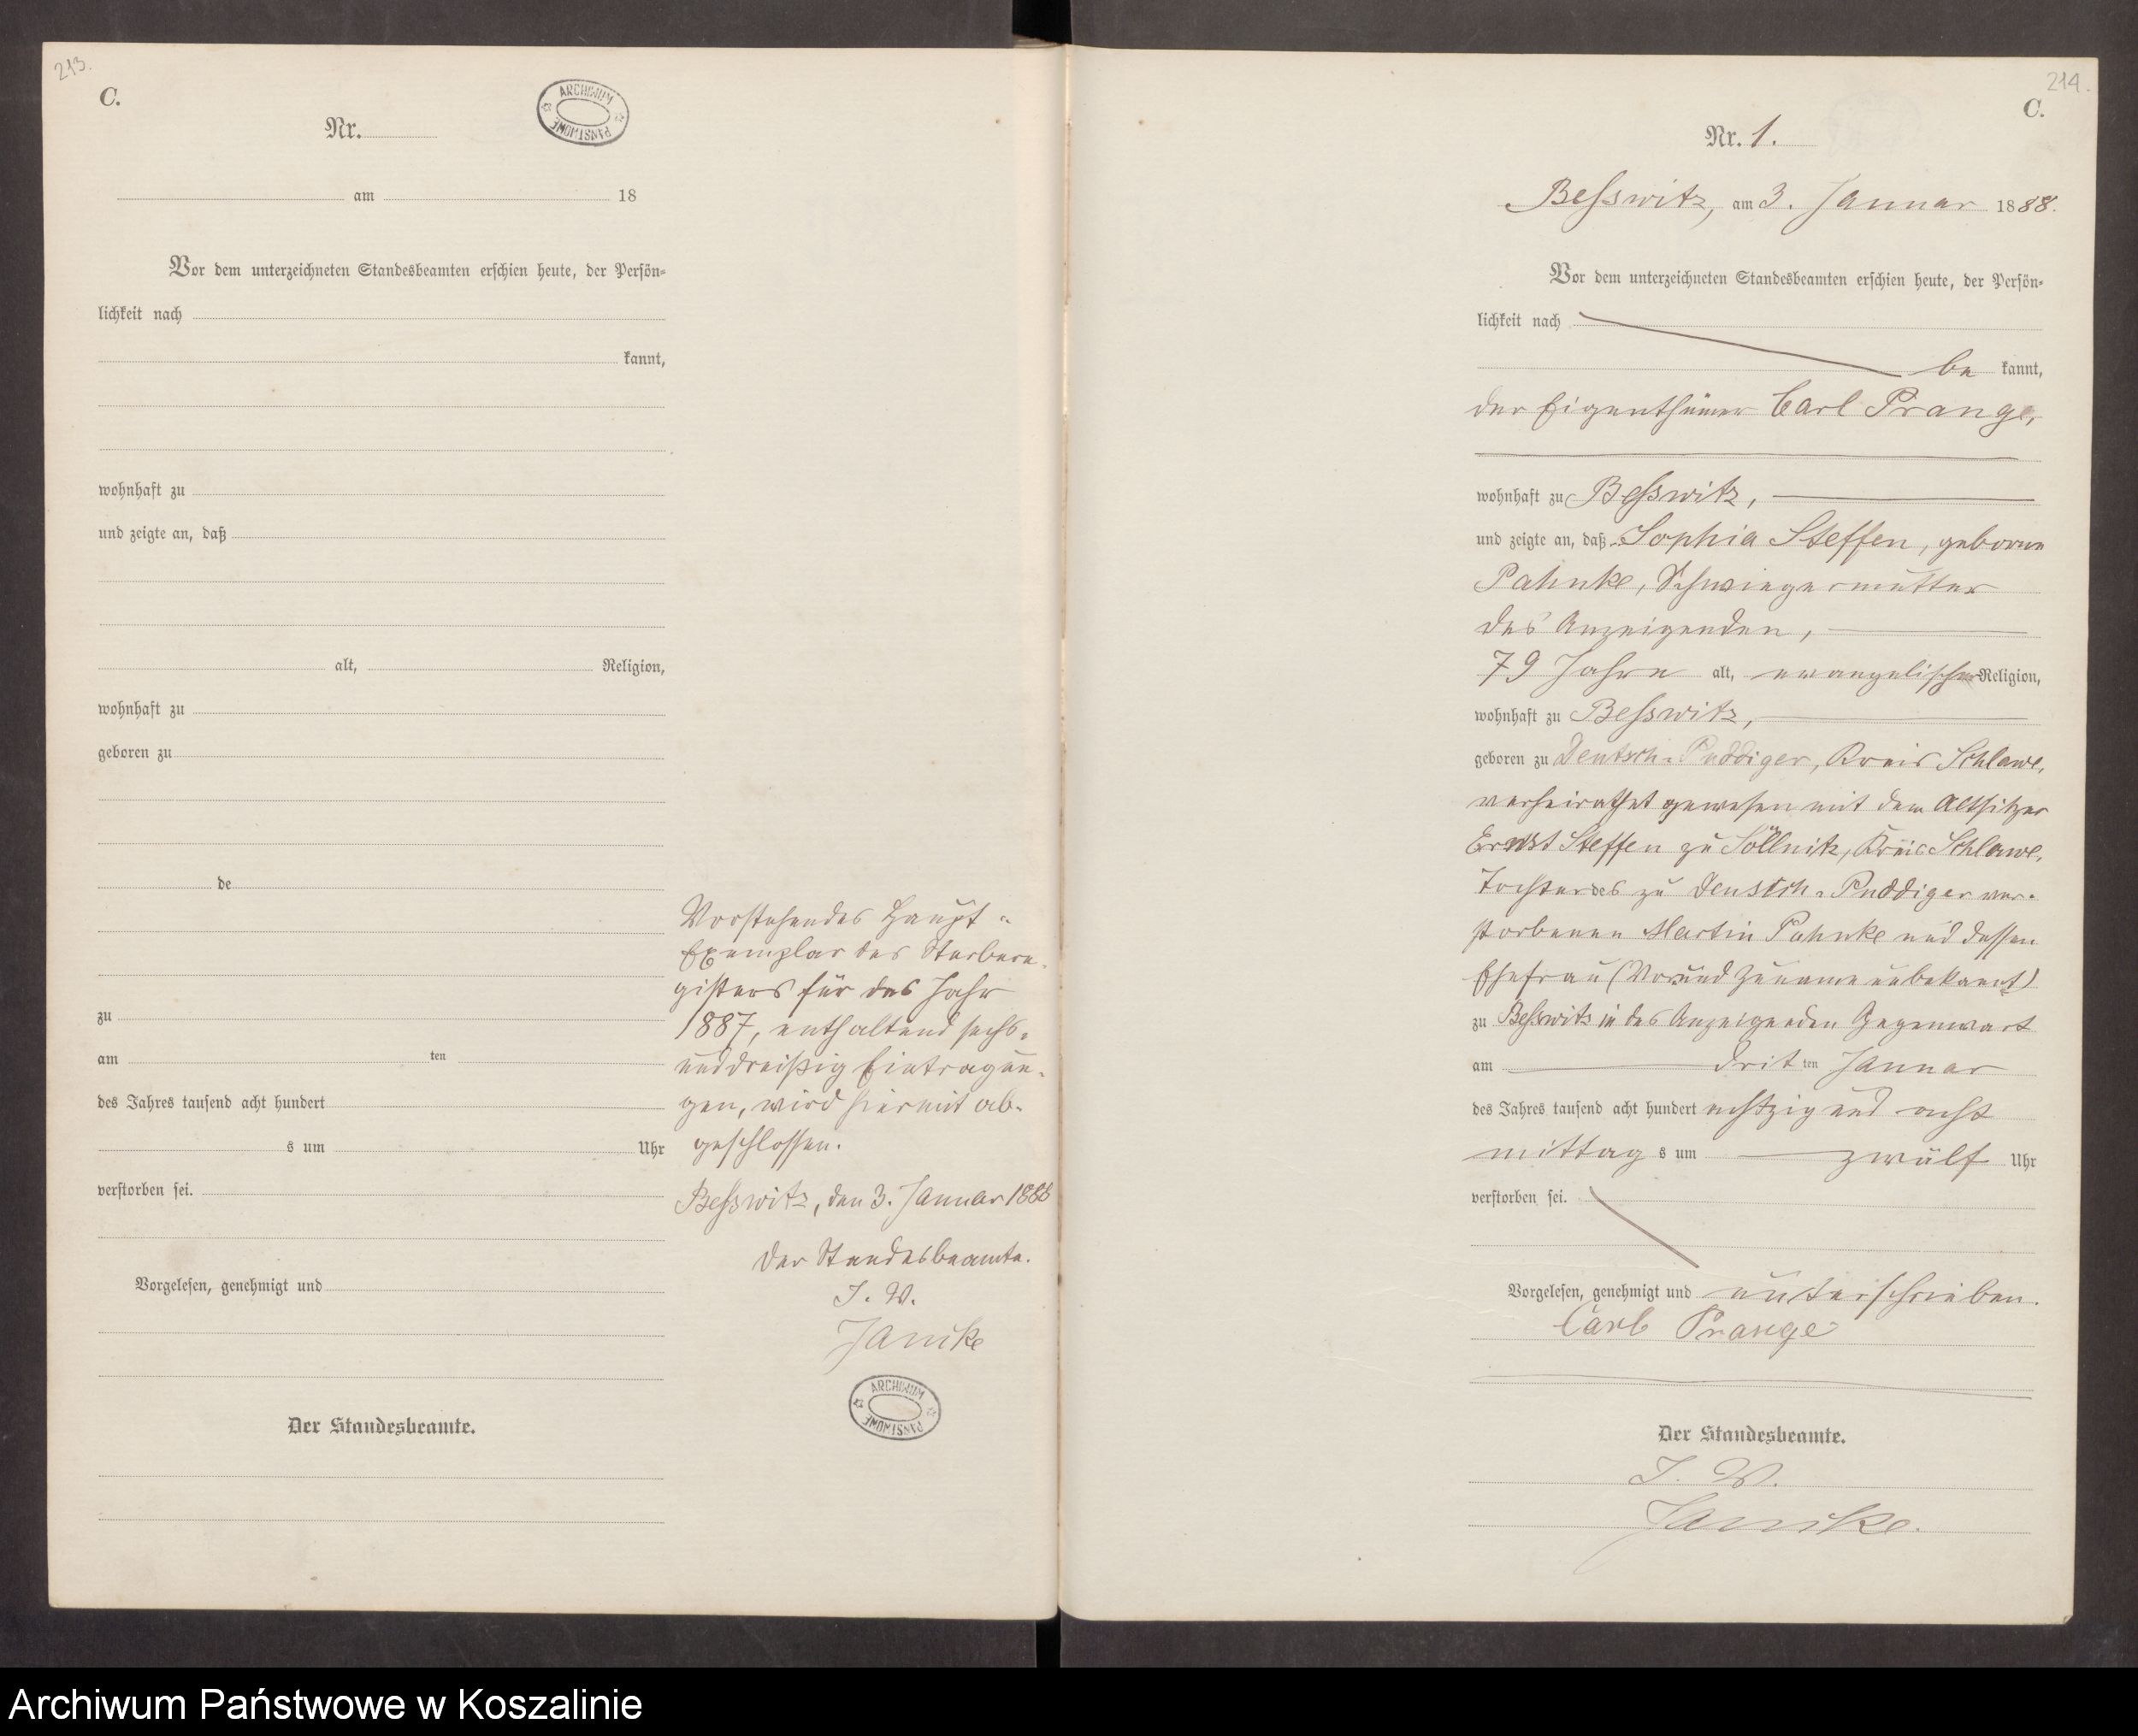 213.
C.
ARCHIWUM PAŃSTWOWE
Nr.
am 18
Vor dem unterzeichneten Standesbeamten erschien heute, der Persön-
lichkeit nach
kannt,
wohnhaft zu
und zeigte an, daß
alt, Religion,
wohnhaft zu
geboren zu
de
zu
am ten
des Jahres tausend acht hundert
s um Uhr
verstorben sei.
Vorgelesen, genehmigt und
Der Standesbeamte.
Vorstehendes Haupt-
Exemplar des Sterbere-
gisters für das Jahr
1887, enthaltend sechs-
unddreißig Eintragun-
gen, wird hiermit ab-
geschlossen.
Beßwitz, den 3. Januar 1888
Der Standesbeamte.
J. V.
Janike
ARCHIWUM PAŃSTWOWE
214.
C.
Nr. 1.
Beßwitz, am 3. Januar 1888.
Vor dem unterzeichneten Standesbeamten erschien heute, der Persön-
lichkeit nach
be kannt,
der Eigenthümer Carl Prange,
wohnhaft zu Beßwitz,
und zeigte an, daß Sophia Steffen, geborne
Pahnke, Schwiegermutter
des Anzeigenden,
79 Jahre alt, evangelischer Religion,
wohnhaft zu Beßwitz,
geboren zu Deutsch-Puddiger, Kreis Schlawe,
verheirathet gewesen mit dem Altsitzer
Ernst Steffen zu Söllnitz, Kreis Schlawe,
Tochter des zu Deutsch-Puddiger ver-
storbenen Martin Pahnke und dessen
Ehefrau (Vor und Zuname unbekannt)
zu Beßwitz in des Anzeigenden Gegenwart
am drit ten Januar
des Jahres tausend acht hundert achtzig und acht
mittag s um zwölf Uhr
verstorben sei.
Vorgelesen, genehmigt und unterschrieben.
Carl Prange
Der Standesbeamte.
J. V.
Janike.
Archiwum Państwowe w Koszalinie